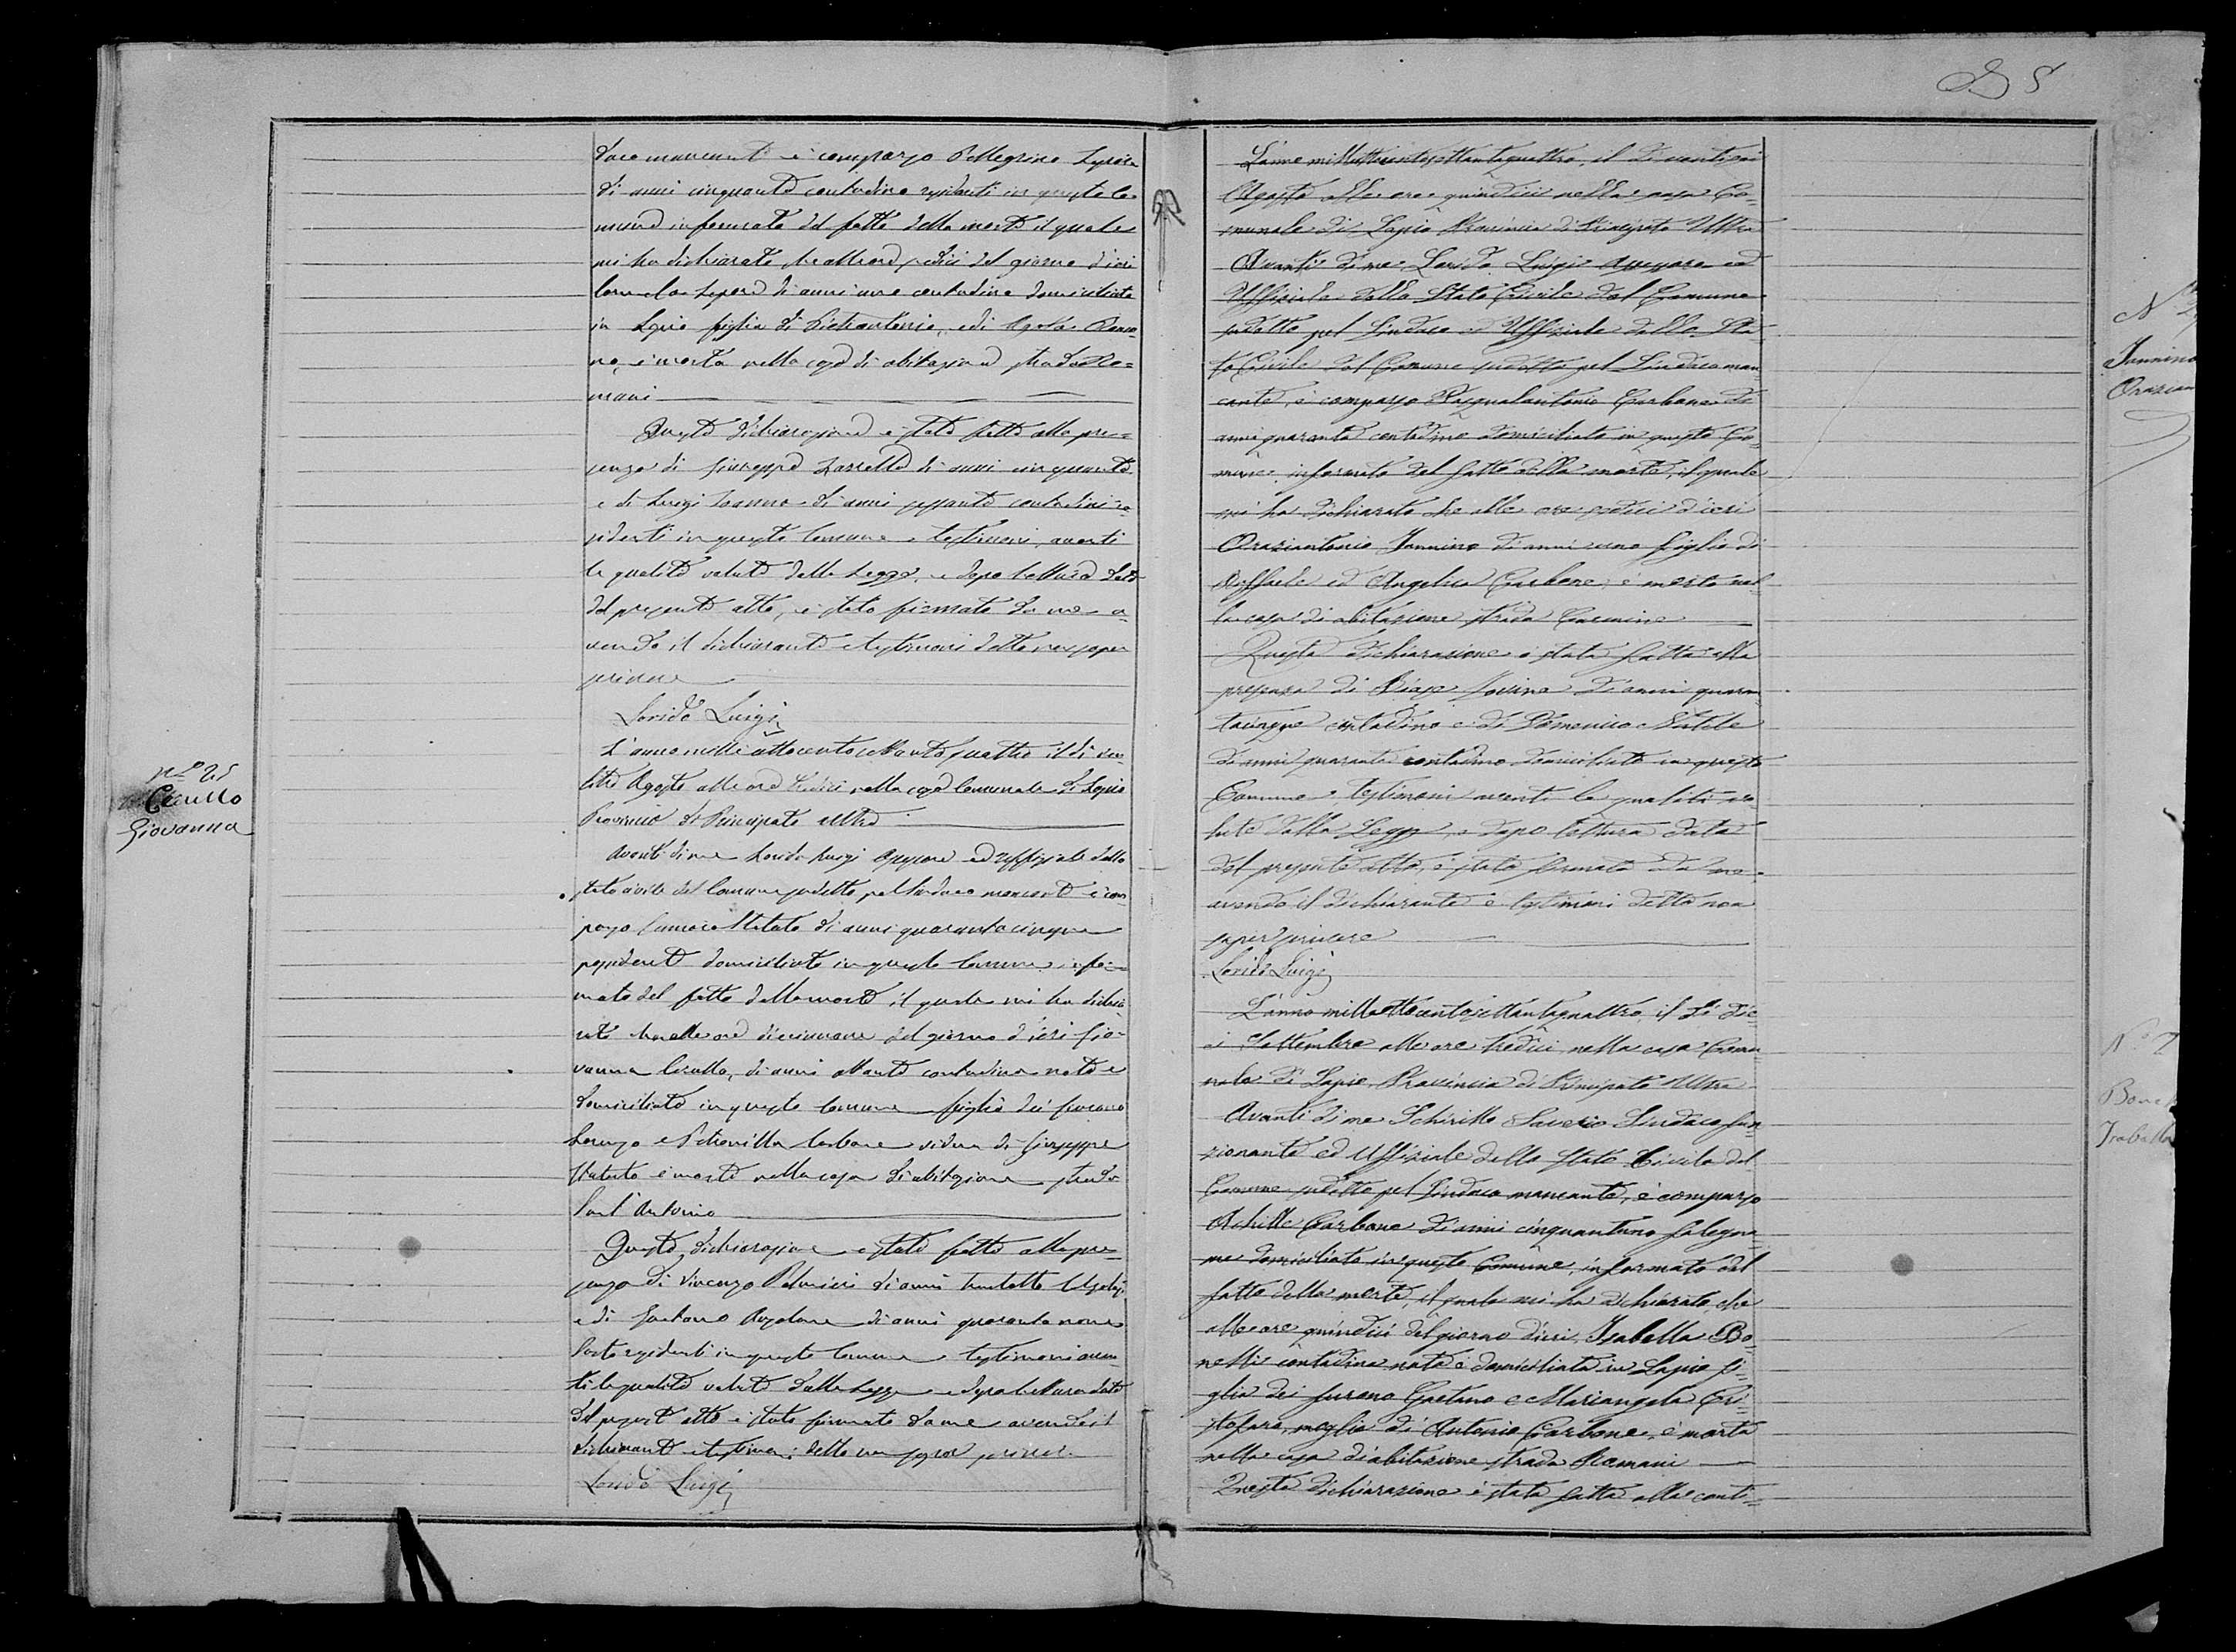 daco mancante è comparso Pellegrino Lepore
di anni cinquanta contadino residenti in questo Co-
mune informato del fatto della morte il quale
mi ha dichiarato, che alle ore sedici del giorno d'ieri
Lepore di anni uno contadina domiciliata
in Lapio figlia di Pietrantonio, e di
no, è morta nella casa di abitazione strada Ro=
mani
Questa dichiarazione è stata fatta alla pre=
senza di Giuseppe di anni cinquanta
e di Luigi di anni sessanta contadini re-
sidenti in questo Comune testimoni, aventi
le qualità volute dalla Legge, e dopo lettura data
del presente atto, è stato firmato da me a-
vendo il dichiarante e testimoni detto non saper
scrivere
Lorido Luigi
Nº 25
Cerullo
Giovanna
L'anno mille ottocento settanta quattro il dì ven
Agosto alle ore tredici nella casa Comunale di Lapio
Provincia di Principato Ultra
Avanti di me Lorido Luigi Assessore ed Uffiziale dello
stato civile del Comune sudetto, pel Sindaco mancante è com
parso Statuto di anni quarantacinque
possidente domiciliato in questo Comune infor=
mato del fatto della morte il quale mi ha dichia
rato che alle ore diecinnove del giorno d'ieri Gio-
vanna Cerullo, di anni ottanta contadina nata e
domiciliata in questo Comune figlia dei furono
Lorenzo e Petronilla Carbone vedova di Giuseppe
Statuto è morta nella casa di abitazione strada
Sant'Antonio
Questa dichiarazione è stata fatta alla pre
senza di Vincenzo di anni trentotto
e di Gaetano di anni quaranta nove
Sarto residenti in questo Comune testimoni aven
ti le qualità volute dalla Legge e dopo lettura data
del presente atto è stato firmato da me avendo il
dichiarante e testimoni detto non saper scrivere
Lorido Luigi
25
L'anno milleottocentosettantaquattro, il dì ventisei
Agosto alle ore quindici nella casa Co-
munale di Lapio Provincia di Principato Ultra
Avanti di me Lorido Luigi Assessore ed
Uffiziale dello Stato Civile del Comune
sudetto pel Sindaco ed Uffiziale dello Sta
to Civile del Comune sudetto pel Sindaco man
cante, è comparso Pasqualantonio Carbone di
anni quaranta contadino domiciliato in questo Co-
mune, informato del fatto della morte, il quale
mi ha dichiarato che alle ore sedici d'ieri
Oraziantonio Iannino di anni uno figlio di
Raffaele ed Angelica Carbone, è morto nel
la casa di abitazione strada Carmine
Questa dichiarazione è stata fatta alla
presenza di Biase di anni quaran
tacinque contadino e di Domenico Natale
di anni quaranta contadino domiciliati in questo
Comune, testimoni aventi le qualità vo
lute dalla Legge, e dopo lettura data
del presente atto, è stato firmato da me
avendo il dichiarante e testimoni detto non
saper scrivere
Lorido Luigi
L'anno milleottocentosettantaquattro, il dì die
ci Settembre alle ore tredici nella casa Comu
nale di Lapio, Provincia di Principato Ultra
Avanti di me Schirillo Saverio Sindaco fun
zionante ed Uffiziale dello Stato Civile del
Comune sudetto pel Sindaco mancante, è comparso
Achille Carbone di anni cinquantuno falegna
me domiciliato in questo Comune, informato del
fatto della morte, il quale mi ha dichiarato, che
alle ore quindici del giorno d'ieri, Isabella Bo
nelli contadina nata e domiciliata in Lapio fi-
glia dei furono Gaetano e Mariangela Cri
stofaro, moglie di Antonio Carbone, è morta
nella casa di abitazione strada Romani
Questa dichiarazione è stata fatta alla conti=
Nº 2
Iannino
Orazian
Nº 2
Bone
Isabella